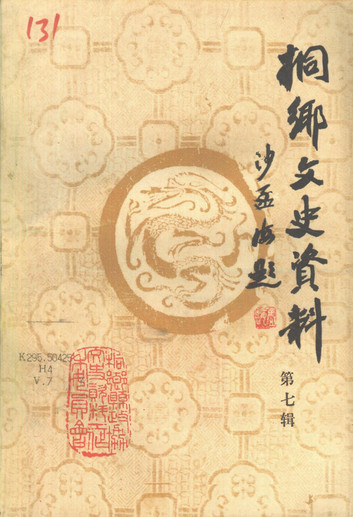 131
桐乡文史資料
沙孟海題
第七辑
K295.50425
H4
V.7